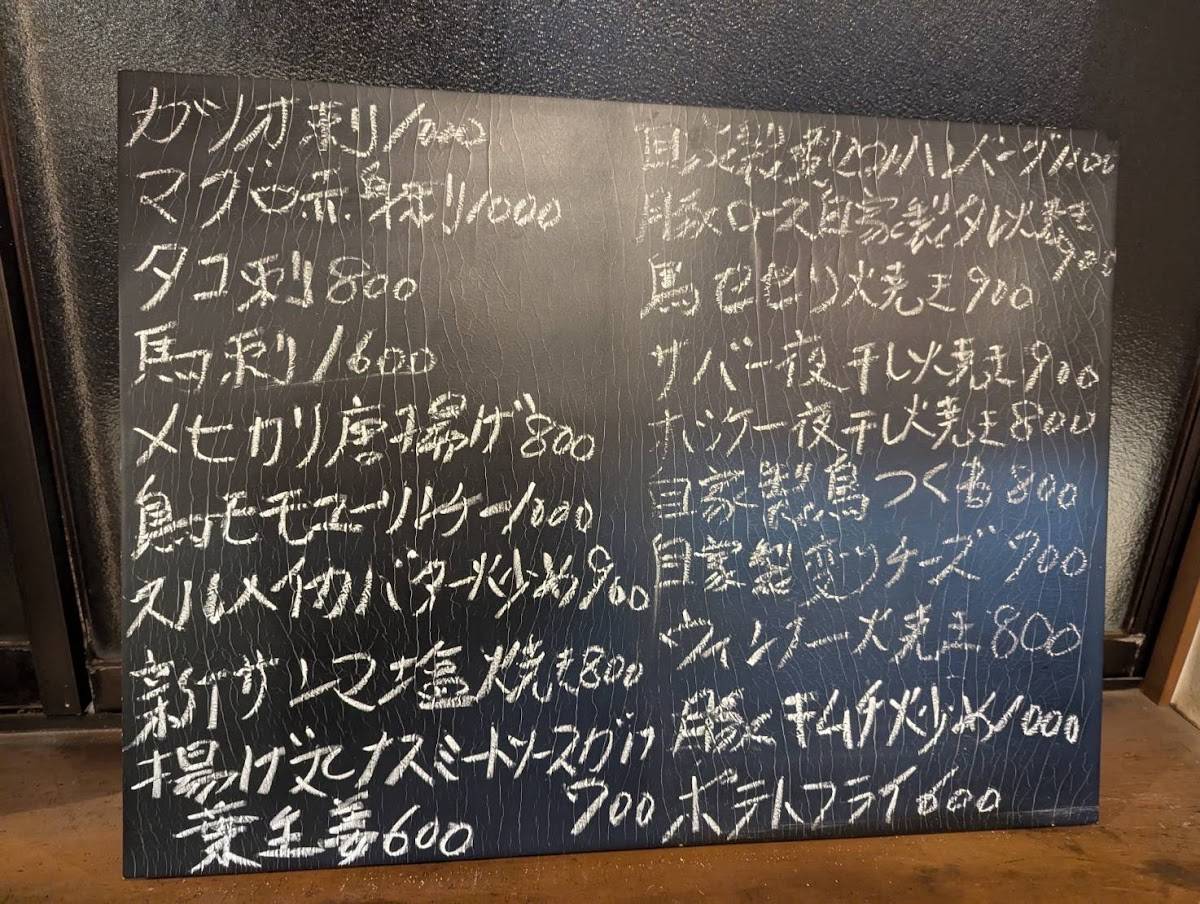 カツオ刺 1000
マグロ赤身刺 1000
タコ刺 800
馬刺 1600
メヒカリ唐揚げ 800
鳥モモユーリルチー 1000
スルメイカバター炒め 900
新サンマ塩焼き 800
揚げ丸ナスミートソースがけ
700
葉生姜 600
自家製 ハンバーグ
豚ロース自家製タレ焼き
900
馬セセリ焼き 900
サバ一夜干し焼き 900
ホッケ一夜干し焼き 800
自家製鳥つくね 800
自家製変りチーズ 700
ウィンナー焼き 800
豚キムチ炒め 1000
ポテトフライ 600